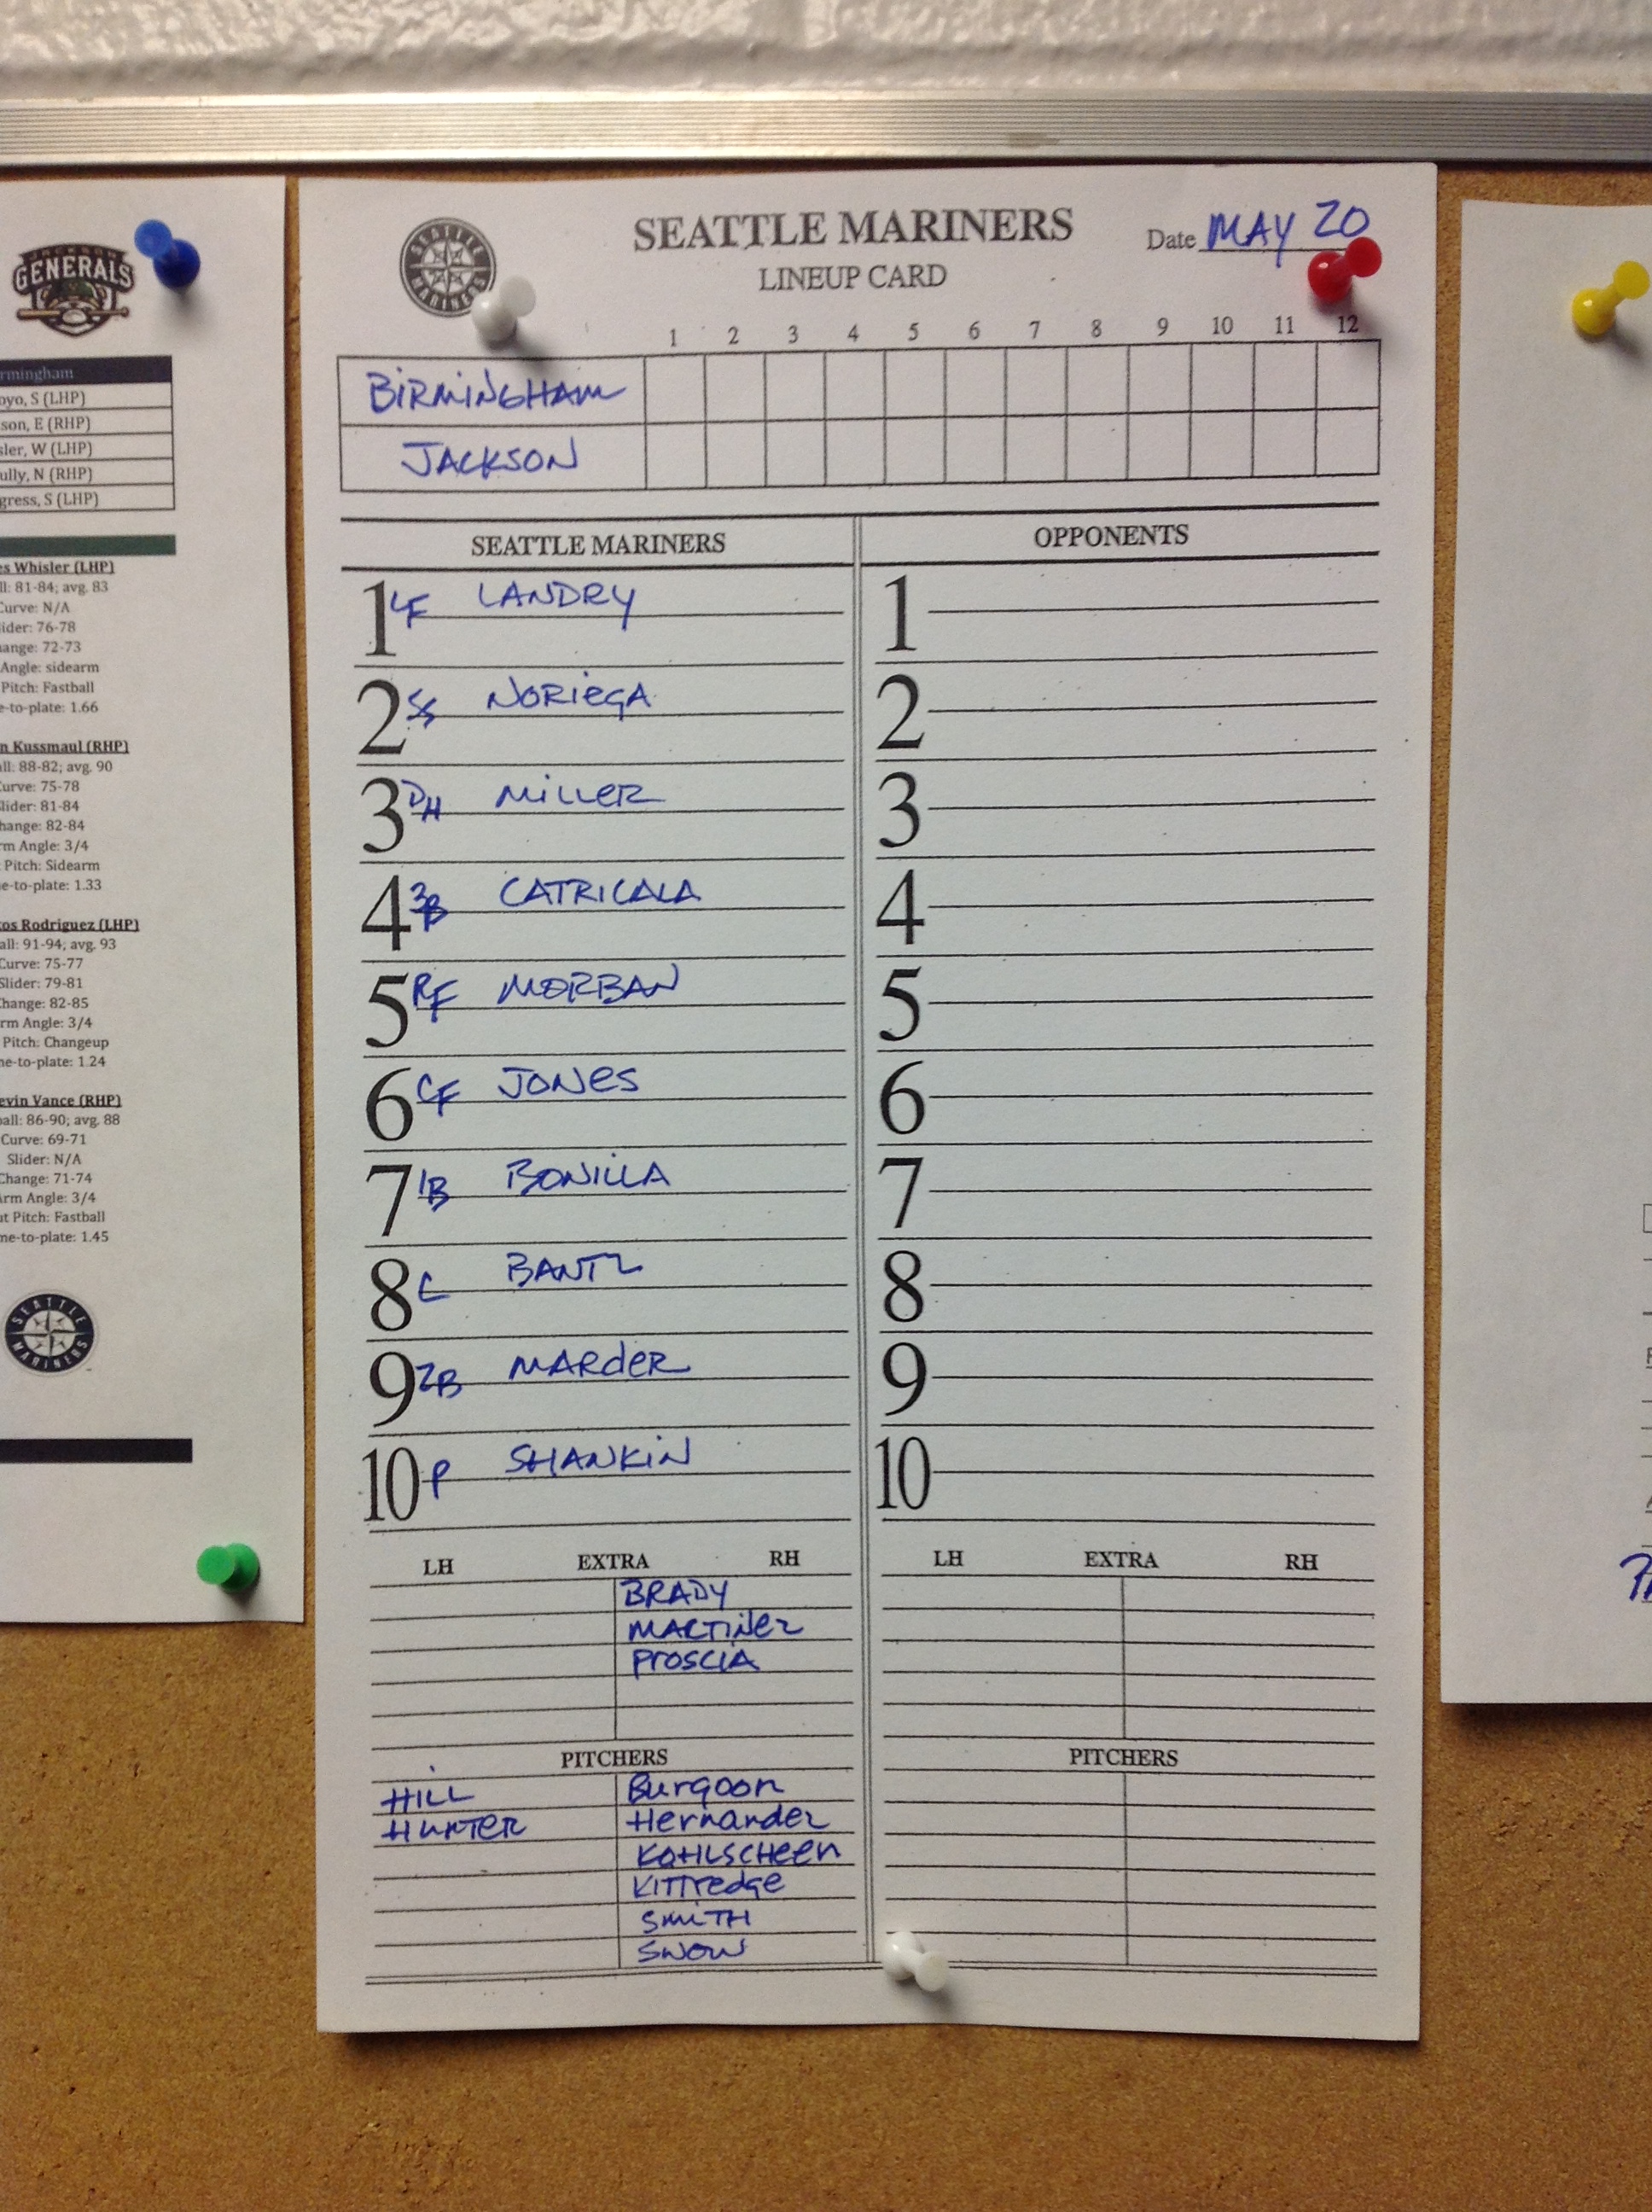 GENERALS
rmingham
oyo, S (LHP)
son, E (RHP)
sler, W (LHP)
ully, N (RHP)
gress, S (LHP)
es Whisler (LHP)
ll: 81-84; avg. 83
Curve: N/A
ider: 76-78
ange: 72-73
Angle: sidearm
Pitch: Fastball
e-to-plate: 1.66
n Kussmaul (RHP)
all: 88-82; avg. 90
urve: 75-78
lider: 81-84
hange: 82-84
rm Angle: 3/4
Pitch: Sidearm
e-to-plate: 1.33
os Rodriguez (LHP)
all: 91-94; avg. 93
Curve: 75-77
Slider: 79-81
Change: 82-85
rm Angle: 3/4
Pitch: Changeup
ne-to-plate: 1.24
evin Vance (RHP)
ball: 86-90; avg. 88
Curve: 69-71
Slider: N/A
Change: 71-74
Arm Angle: 3/4
ut Pitch: Fastball
me-to-plate: 1.45
SEATTLE MARINERS
SEATTLE MARINERS
SEATTLE MARINERS
LINEUP CARD
Date MAY 20
1 2 3 4 5 6 7 8 9 10 11 12
BIRMINGHAM
JACKSON
SEATTLE MARINERS
1 LF LANDRY
2 SS NORIEGA
3 DH MILLER
4 3B CATRICALA
5 RF MORBAN
6 CF JONES
7 1B BONILLA
8 C BANTZ
9 2B MARDER
10 P SHANKIN
LH EXTRA RH
BRADY
MARTINEZ
PROSCIA
PITCHERS
HILL Burgoon
HUNTER Hernandez
KOHLSCHEEN
KITTredge
SMITH
SNOW
OPPONENTS
1
2
3
4
5
6
7
8
9
10
LH EXTRA RH
PITCHERS